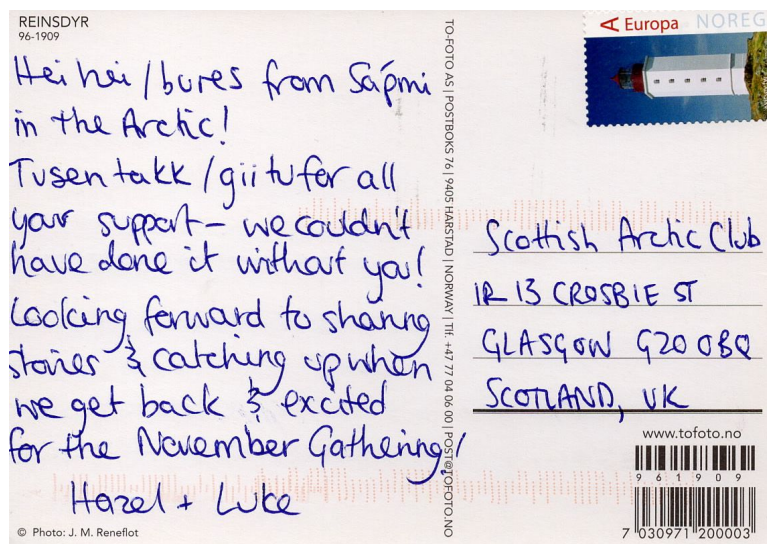 REINSDYR
96-1909
Hei hei / bures from Sápmi
in the Arctic!
Tusen takk / giitu for all
your support – we couldn't
have done it without you!
Looking forward to sharing
stories & catching up when
we get back & excited
for the November Gathering!
Hazel + Luke
© Photo: J. M. Reneflot
TO-FOTO AS | POSTBOKS 76 | 9405 HARSTAD | NORWAY | Tlf. +47 77 04 06 00 | POST@TOFOTO.NO
A Europa NOREG
Scottish Arctic Club
1R 13 CROSBIE ST
GLASGOW G20 0BQ
SCOTLAND, UK
www.tofoto.no
961909
7 030971 200003